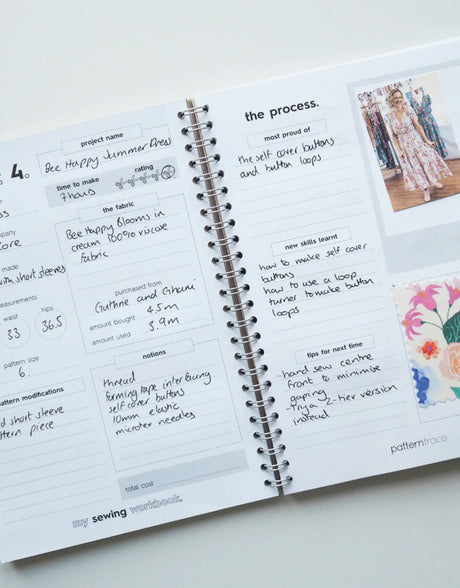 4.
project name
Bee Happy Summer Dress
time to make
7 hours
rating
company
Core
made
with short sleeves
measurements
waist
hips
33
36.5
pattern size
6.
pattern modifications
short sleeve
pattern piece
the fabric
Bee Happy Blooms in
cream 100% viscose
fabric
purchased from
Guthrie and Ghani
amount bought 4.5m
amount used 3.9m
notions
thread
forming tape interfacing
self cover buttons
10mm elastic
microtex needles
total cost
my sewing workbook.
the process.
most proud of
the self cover buttons
and button loops
new skills learnt
how to make self cover
buttons
how to use a loop
turner to make button
loops
tips for next time
-hand sew centre
front to minimise
gaping
-try a 2-tier version
instead
patterntrace